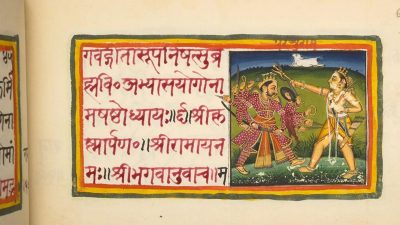 गवद्गीतासूपनिषत्सुब्र
ह्मवि॰ अभ्यासयोगोना
मषष्ठोध्यायः॥६॥श्रीकृ
ष्णार्पण॰ श्रीरामायन
मः॥श्रीभगवानुवाच॥म